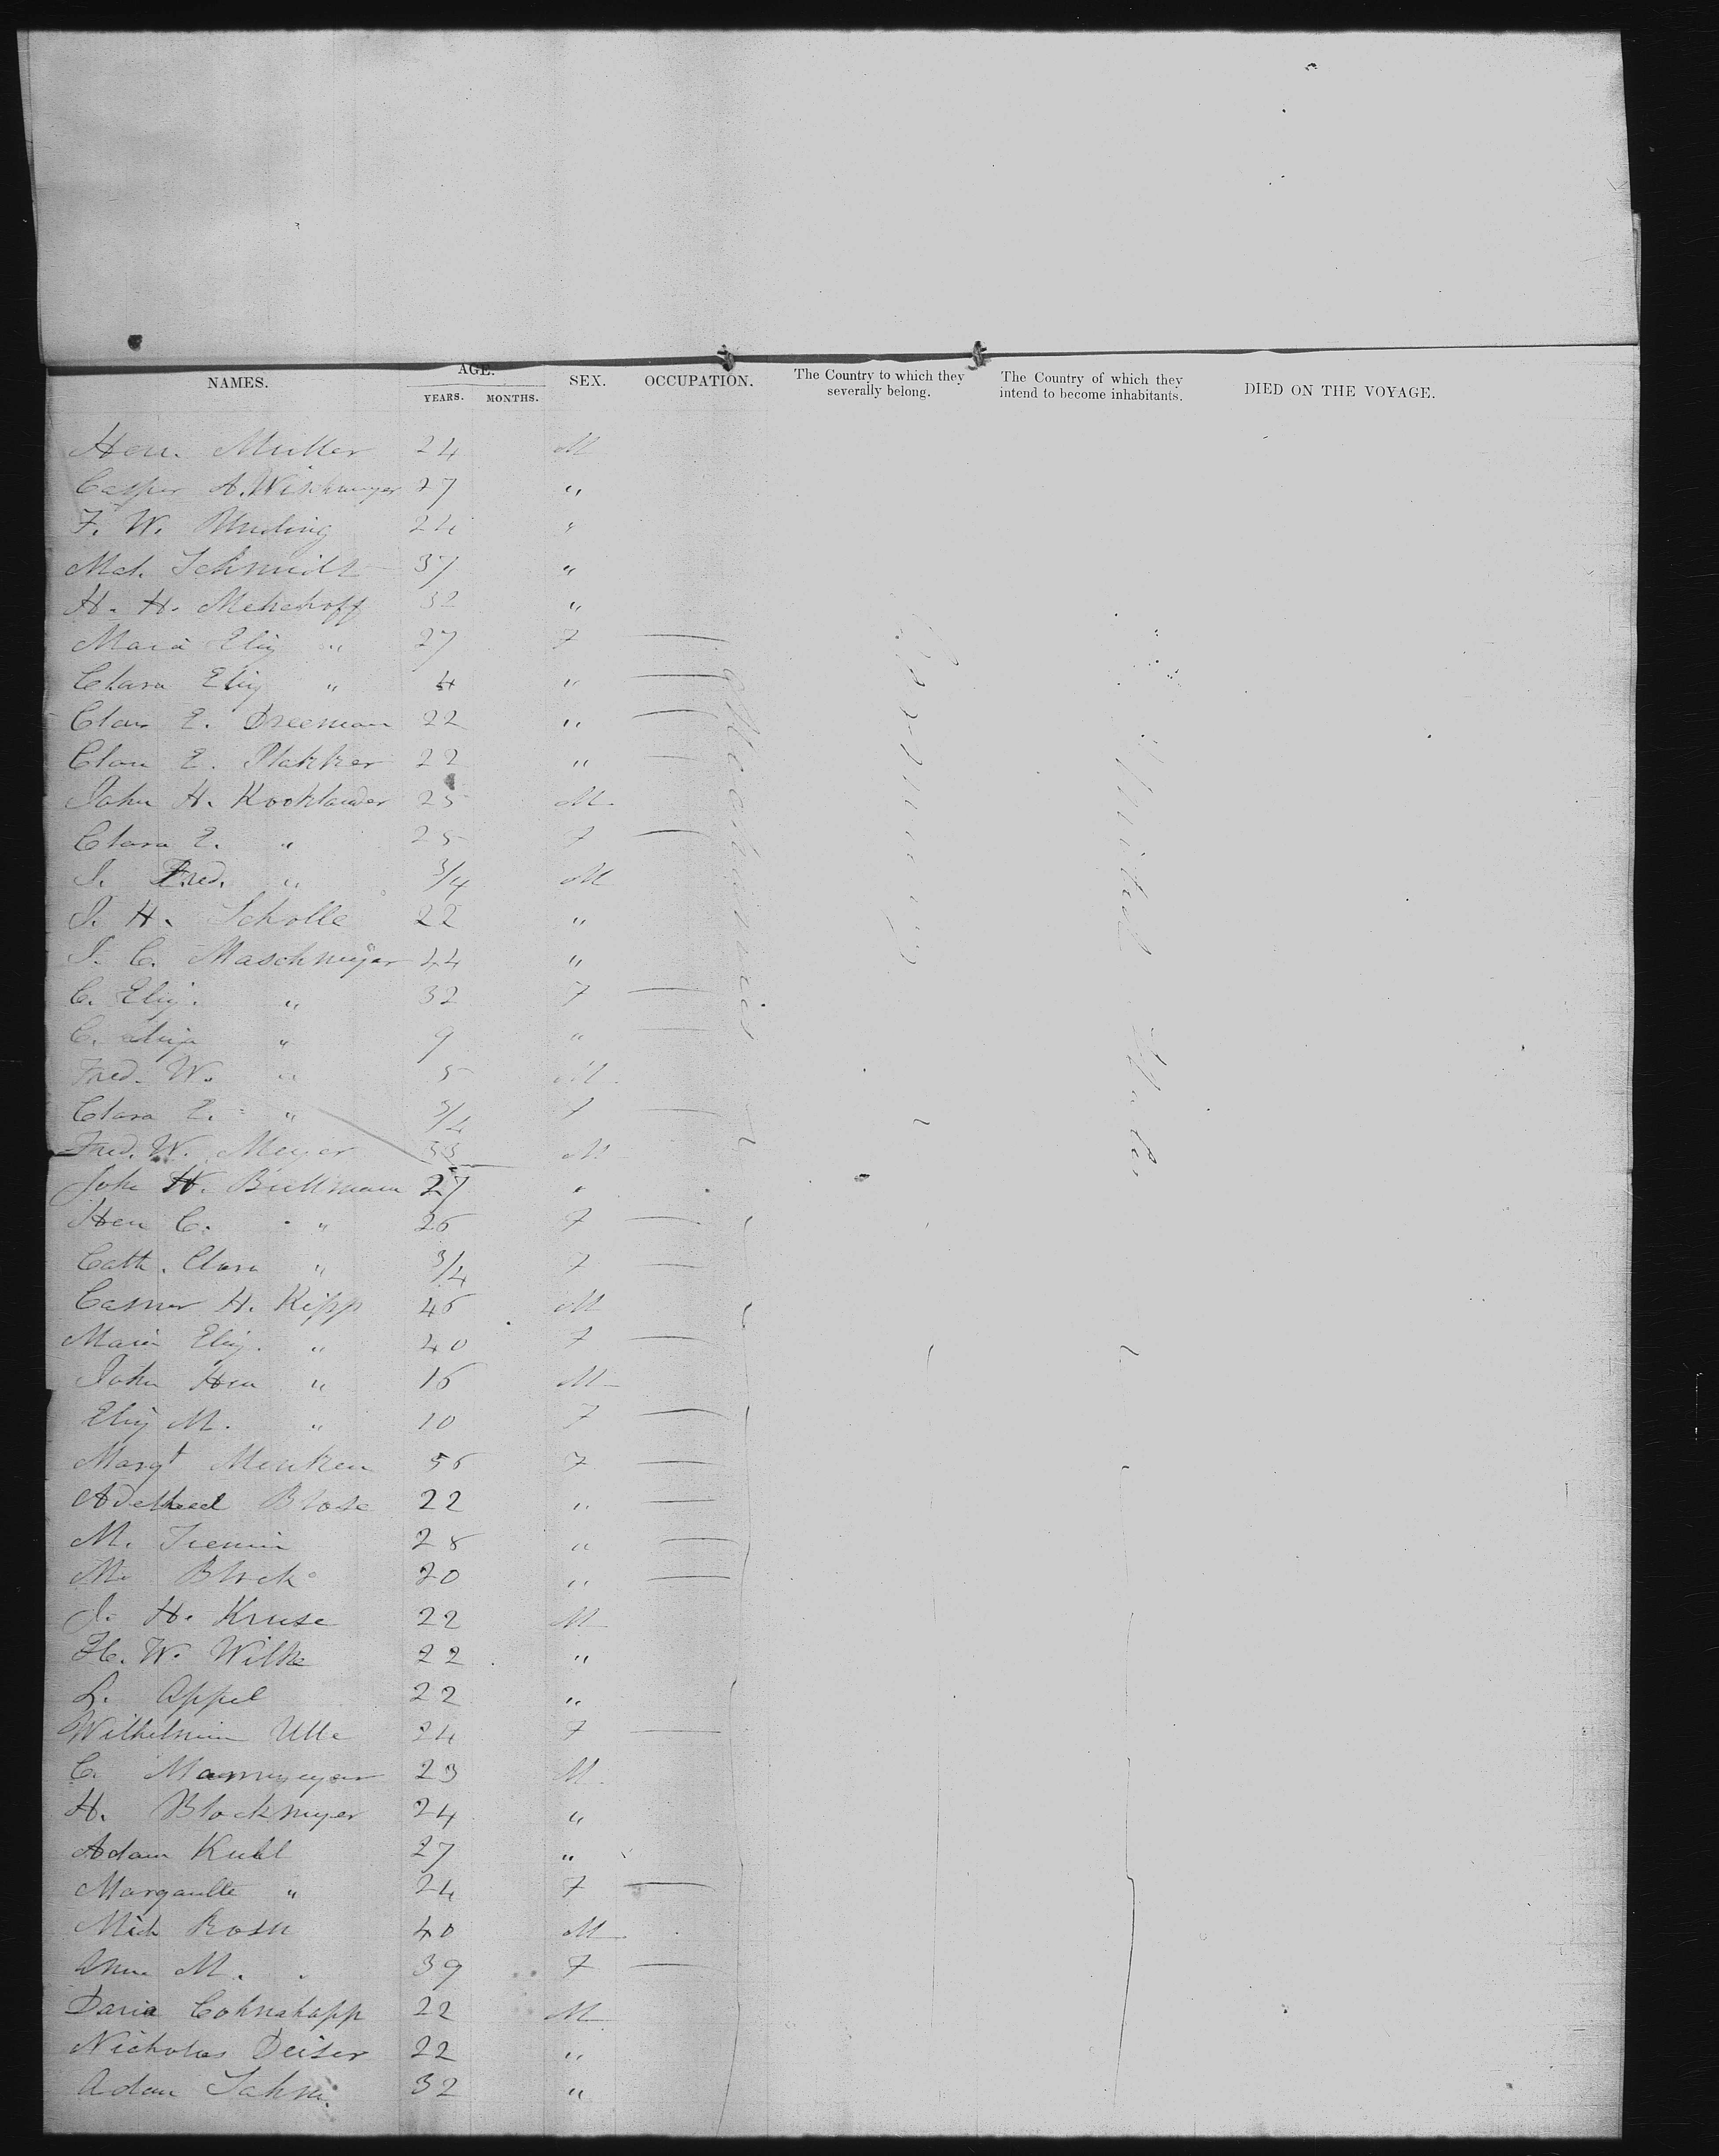 NAMES. AGE. SEX. OCCUPATION. The Country to which they severally belong. The Country of which they intend to become inhabitants. DIED ON THE VOYAGE.
YEARS. MONTHS.
Hen. Muller 24 M
Casper A. Wischmeyer 27 "
F. W. 24 "
Mch. Schmidt 37 "
H. H. Menchoff 32 "
Maria Eliz " 27 F —
Clara Eliz " 4 " —
Clara E. Dreeman 22 " —
Clara E. Plakker 22 " —
John H. Kooklander 25 M
Clara E. " 25 F —
J. Fred. " 3/4 M
J. H. Scholle 22 "
J. C. Maschmeyer 44 "
C. Eliz. " 32 F —
C. " 9 " —
Fred. W. " 5 M
Clara E. " 3/4 F —
Fred. W. Meyer 33 M
John H. Bullmann 27 "
Hen C. " 26 F —
Cath. Clara " 3/4 F —
Casner H. Kipp 46 M
Maria Eliz. " 40 F —
John Hen " 16 M
Eliz M. " 10 F —
Margt Menken 56 F —
Adelheed Blose 22 " —
M. 28 " —
M. Block 20 " —
J. H. Kruse 22 M
H. W. Wilke 22 "
L. Appel 22 "
Wilhelmin Ulle 24 F —
C. 23 M
H. Blockmyer 24 "
Adam Kuhl 27 "
Margaulte " 24 F —
Mich Rosn 40 M
Anna M. " 39 F —
Daria Cohnakapp 22 M
Nicholas Deiser 22 "
Adam Sahm. 32 "
Mechanics
Germany
United States